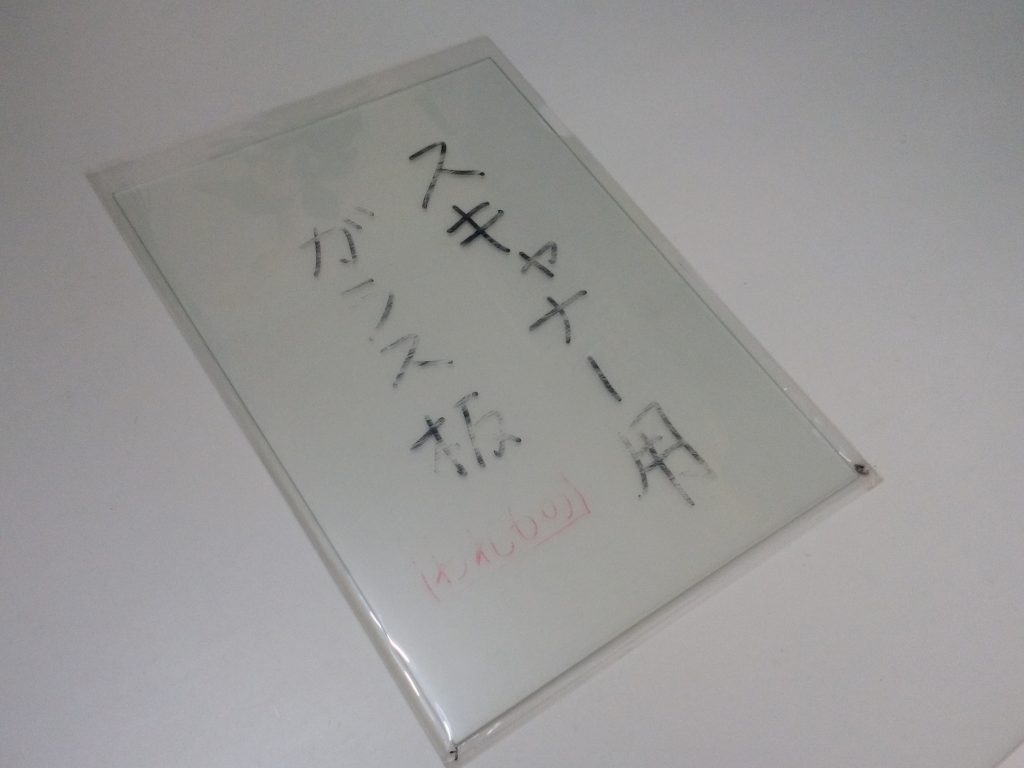 スキャナー用
ガラス板